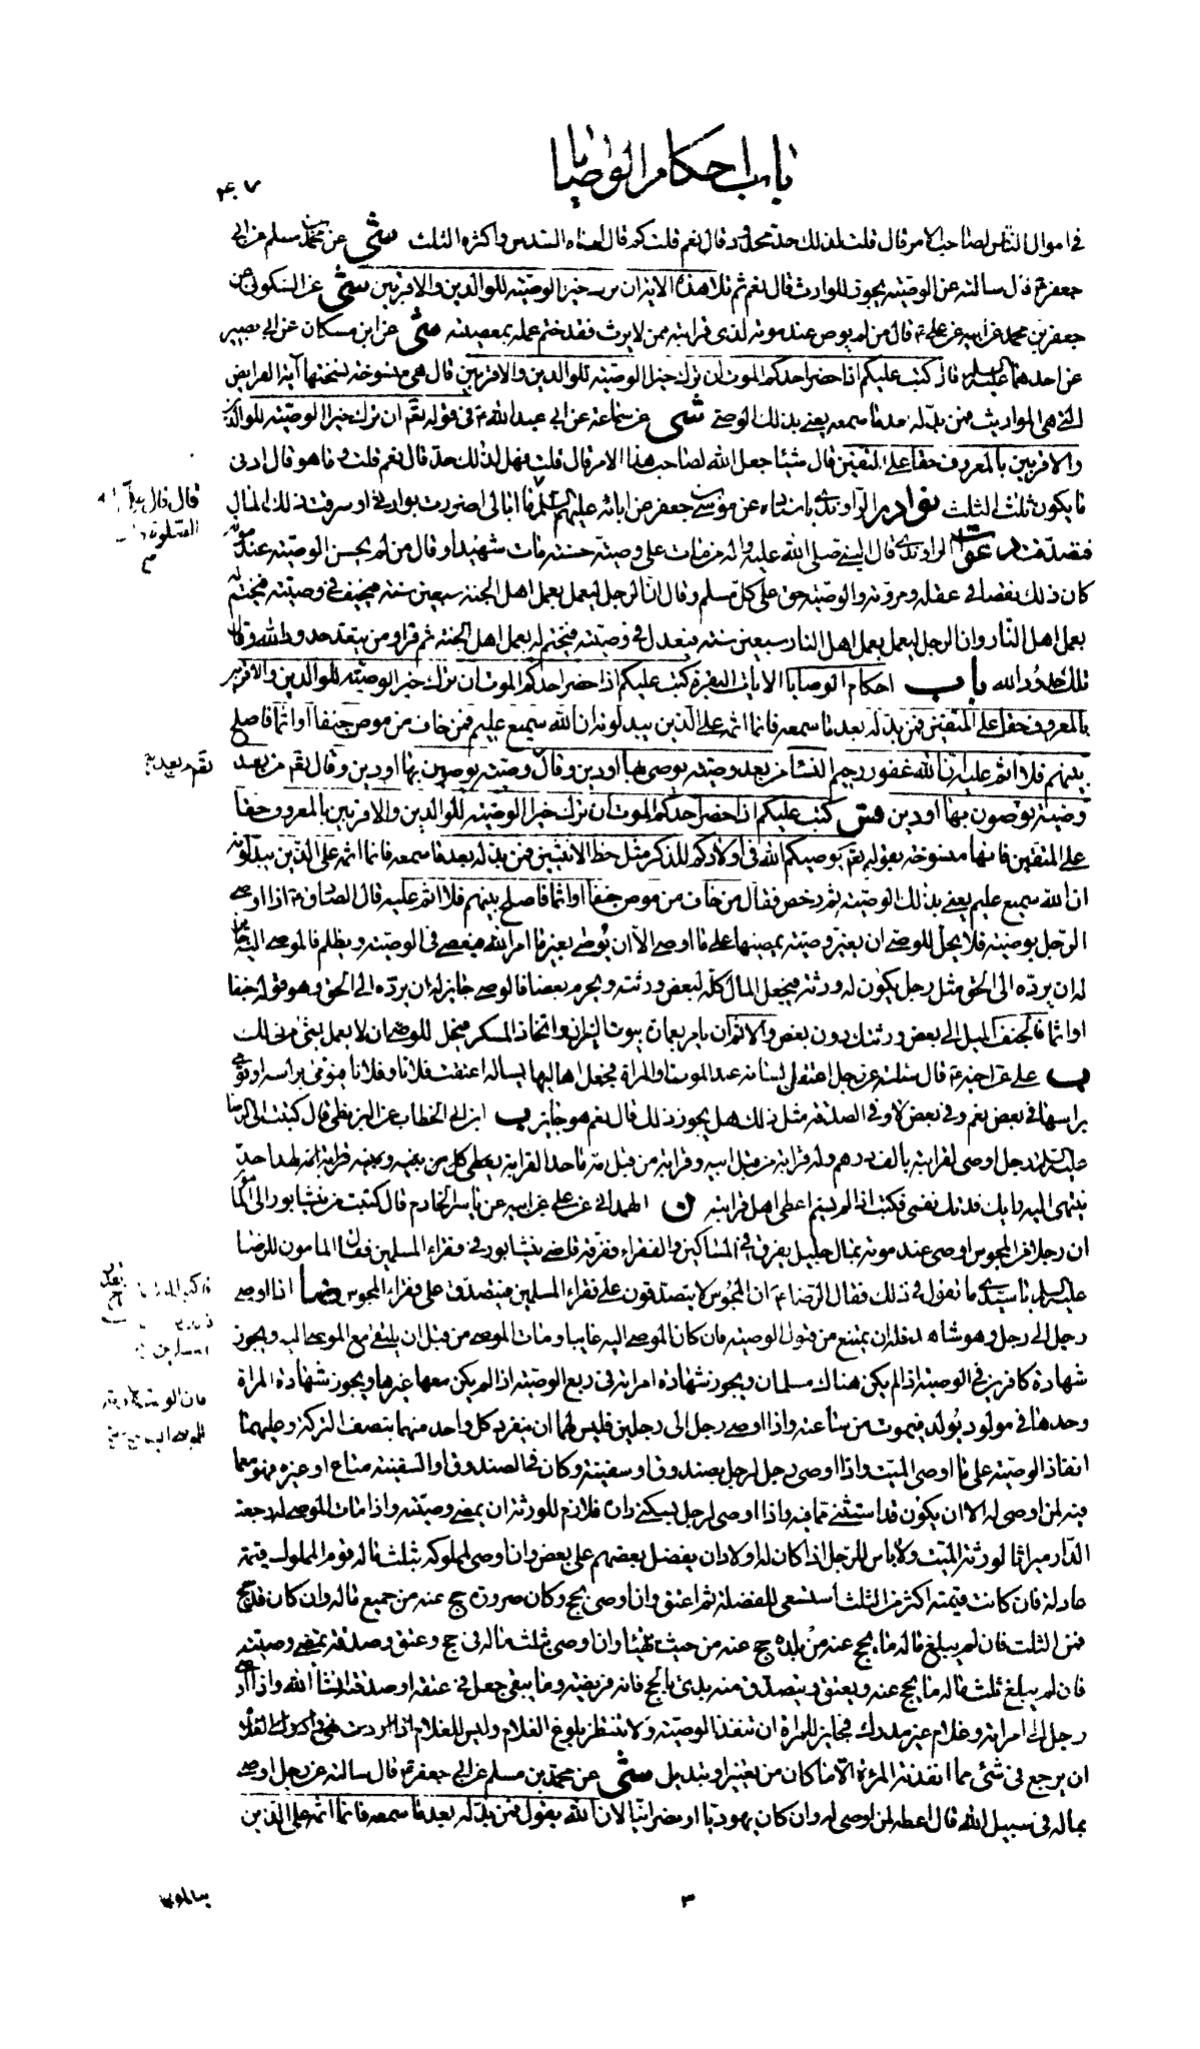 باب احكام الوصايا
۴۰۷
في اموال الناس لصاحب الامر قال قلت لذلك حد محدود قال نعم قلت كم قال ادناه السدس واكثره الثلث شى عن محمد بن مسلم عن ابي
جعفر ع قال سالته عن الوصية يجوز للوارث قال نعم ثم تلا هذه الاية ان ترك خيرا الوصية للوالدين والاقربين شى عن السكوني عن
جعفر بن محمد عن ابيه عن علي ع قال من لم يوص عند موته لذي قرابته ممن لا يرث فقد ختم عمله بمعصيته شى عن ابن مسكان عن ابي بصير
عن احدهما عليه السلم قال كتب عليكم اذا حضر احدكم الموت ان ترك خيرا الوصية للوالدين والاقربين قال هي منسوخة نسختها آية الفرايض
التي هي المواريث فمن بدله بعد ما سمعه يعني بذلك الوصي شى عن سماعة عن ابي عبد الله ع في قوله تعم ان ترك خيرا الوصية للوالدين
والاقربين بالمعروف حقا على المتقين قال شيئا جعل الله لصاحب هذا الامر قال قلت فهل لذلك حد قال نعم قلت وما هو قال ادنى
ما يكون ثلث الثلث نوادر الراوندي باسناده عن موسى بن جعفر عن ابائه عليهم السلم ما ابالي اضررت بوارثي او سرقت ذلك المال
فتصدقت به دعوات الراوندي قال النبي صلى الله عليه واله من مات على وصية حسنة مات شهيدا وقال من لم يحسن الوصية عند موته
كان ذلك نقصا في عقله ومروته والوصية حق على كل مسلم وقال ان الرجل ليعمل بعمل اهل الجنة سبعين سنة فيحيف في وصيته فيختم له
بعمل اهل النار وان الرجل ليعمل بعمل اهل النار سبعين سنة فيعدل في وصيته فيختم له بعمل اهل الجنة ثم قرا ومن يتعد حدود الله وقال
تلك حدود الله باب احكام الوصايا الايات البقرة كتب عليكم اذا حضر احدكم الموت ان ترك خيرا الوصية للوالدين والاقربين
بالمعروف حقا على المتقين فمن بدله بعد ما سمعه فانما اثمه على الذين يبدلونه ان الله سميع عليم فمن خاف من موص جنفا او اثما فاصلح
بينهم فلا اثم عليه ان الله غفور رحيم النساء من بعد وصية يوصى بها او دين وقال وصية يوصين بها او دين وقال تعم من بعد
وصية توصون بها او دين فس كتب عليكم اذا حضر احدكم الموت ان ترك خيرا الوصية للوالدين والاقربين بالمعروف حقا
على المتقين فانها منسوخة بقوله تعم يوصيكم الله في اولادكم للذكر مثل حظ الانثيين فمن بدله بعد ما سمعه فانما اثمه على الذين يبدلونه
ان الله سميع عليم يعني بذلك الوصية ثم رخص فقال من خاف من موص جنفا او اثما فاصلح بينهم فلا اثم عليه قال الصادق ع اذا اوصى
الرجل بوصية فلا يحل للوصي ان يغير وصيته يمضيها على ما اوصى الا ان يوصي بغير ما امر الله فيعصي في الوصية ويظلم فالموصى اليه جايز
له ان يرده الى الحق مثل رجل يكون له ورثة فيجعل المال كله لبعض ورثته ويحرم بعضا فالوصي جايز له ان يرده الى الحق وهو قوله جنفا
او اثما فالجنف الميل الى بعض ورثتك دون بعض والاثم ان يامر بعمارة بيوت النيران واتخاذ المسكر فيحل للوصي ان لا يعمل بشئ من ذلك
ب علي عن اخيه ع قال سالته عن رجل اعتقل لسانه عند الموت او المراة فجعل اهاليها يساله اعتقت فلانا وفلانا فيومئ براسه او تومئ
براسها في بعض نعم وفي بعض لا وفي الصدقة مثل ذلك هل يجوز ذلك قال نعم هو جايز ب ابن ابي الخطاب عن البزنطي قال كتبت الى الرضا
عليه السلم رجل اوصى لقرابته بالف درهم وله قرابة من قبل ابيه وقرابة من قبل امه ما حد القرابة يعطى كل من بينه وبينه قرابة ام لهذا حد
ينتهي اليه رايك فدتك نفسي فكتب اذا لم يسم اعطى اهل قرابته ن الهمداني عن علي عن ابيه عن ياسر الخادم قال كتبت من نيشابور الى المامون
ان رجلا من المجوس اوصى عند موته بمال جليل يفرق في المساكين والفقراء ففرقه قاضي نيشابور في فقراء المسلمين فقال المامون للرضا
عليه السلم يا سيدي ما تقول في ذلك فقال الرضا ع ان المجوس لا يتصدقون على فقراء المسلمين فتصدق على فقراء المجوس ضا اذا اوصى
رجل الى رجل وهو شاهد فله ان يمتنع من قبول الوصية فان كان الموصى اليه غايبا ومات الموصي من قبل ان يلتقي مع الموصى اليه ويجوز
شهادة كافرين في الوصية اذا لم يكن هناك مسلمان ويجوز شهادة امراة في ربع الوصية اذا لم يكن معها غيرها ويجوز شهادة المراة
وحدها في مولود يولد فيموت من ساعته واذا اوصى رجل الى رجلين فليس لهما ان ينفرد كل واحد منهما بنصف التركة وعليهما
انفاذ الوصية على ما اوصى الميت واذا اوصى رجل لرجل بصندوق او سفينة وكان في الصندوق او السفينة متاع او غيره فهو مع ما
فيه لمن اوصى له الا ان يكون قد استثنى بما فيه واذا اوصى لرجل بسكنى دار فلازم للورثة ان يمضي وصيته واذا مات الموصى له رجعت
الدار ميراثا لورثة الميت ولا باس للرجل اذا كان له اولاد ان يفضل بعضهم على بعض وان اوصى لمملوكه بثلث ماله قوم المملوك قيمة
عادلة فان كانت قيمته اكثر من الثلث استسعي للفضلة ثم اعتق وان اوصى بحج وكان صرورة حج عنه من جميع ماله وان كان قد حج
فمن الثلث فان لم يبلغ ماله ما يحج عنه من بلده حج عنه من حيث تهيئا وان اوصى بثلث ماله في حج وعتق وصدقة تمضي وصيته
فان لم يبلغ ثلث ماله ما يحج عنه ويعتق ويتصدق منه بدئ بالحج فانه فريضة وما يبقى جعل في عتق او صدقة انشاء الله واذا اوصى
رجل الى امراته وغلام غير مدرك فجايز للمراة ان تنفذ الوصية ولا تنتظر بلوغ الغلام وليس للغلام اذا
ان يرجع في شئ مما انفذته المرءة الا ما كان من تغيير او تبديل شى عن محمد بن مسلم عن ابي جعفر ع قال سالته عن رجل اوصى
بماله في سبيل الله قال اعطه لمن اوصى له وان كان يهوديا او نصرانيا لان الله يقول فمن بدله بعد ما سمعه فانما اثمه على الذين
۳